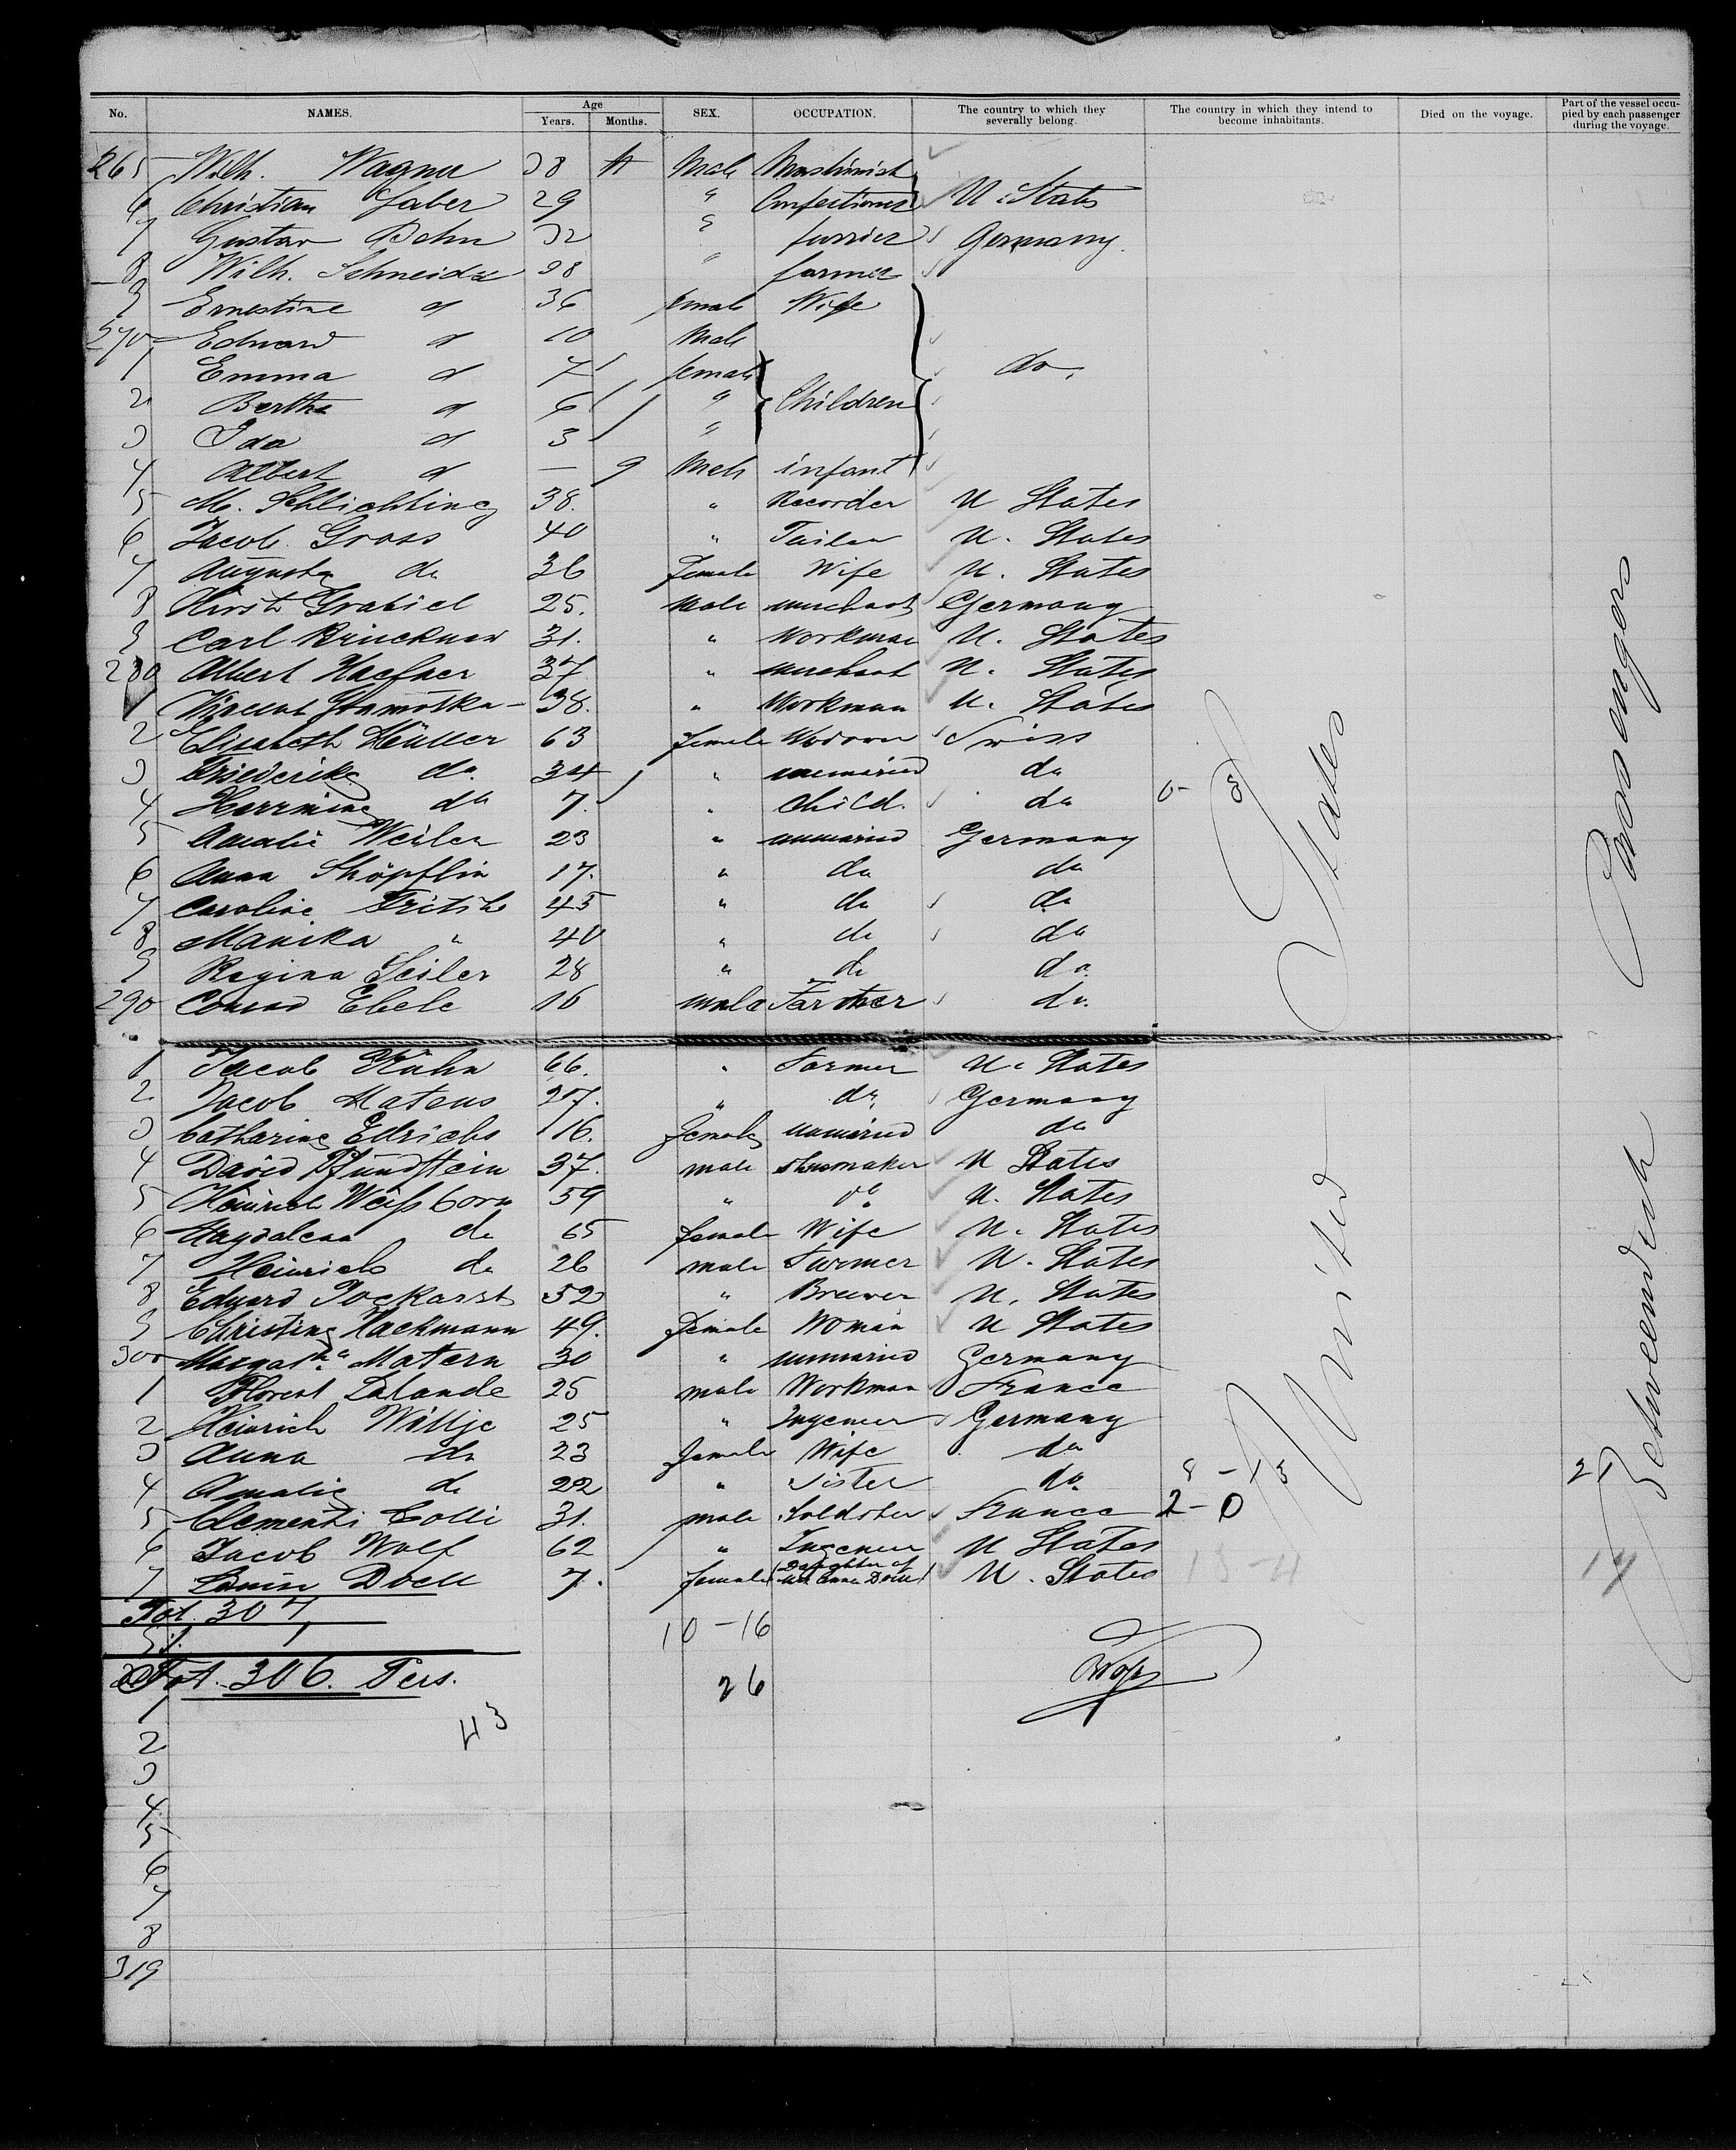 No. NAMES. Age Years. Months. SEX. OCCUPATION. The country to which they severally belong. The country in which they intend to become inhabitants. Died on the voyage. Part of the vessel occupied by each passenger during the voyage.
265 Wilh. Wagner 38 Male
6 Christian Faber 29 " Confectioner U. States
7 Gustav Behn 32 " furrier Germany.
8 Wilh. Schneider 38 " farmer
9 Ernestine d 36 female Wife
270 Eduard d 10 Male
1 Emma d 7 female do.
2 Bertha d 6 " Children
3 Ida d 3 "
4 Albert d — 9 Male infant
5 M. Schlichting 38. " Recorder U States
6 Jacob Gross 40 " Tailor U. States
7 Augusta do 36 Female Wife U. States
8 Grabiel 25. Male merchant Germany
9 Carl Brückner 31. " Workman U. States
280 Albert Haefner 37 " merchant U. States
1 38. " Workman U. States
2 Elisabeth Müller 63 female Swiss
3 Friederike do. 34 " unmaried do
4 Hermine do 7. " Child. do
5 Amalie Weiler 23 " unmaried Germany
6 Anna Shöpflin 17. " do do
7 Caroline 45 " do do
8 Manika " 40 " do do
9 Regina Seiler 28 " do do
290 Conrad Ebele 16 male do.
1 Jacob Kuhn 66. " Farmer U. States
2 Jacob Mateus 27. " do. Germany
3 Catharine Ellrichs 16. female unmaried do
4 David Pfundstein 37. male shuemaker U States
5 Heinrich Weissborn 59 " do. U. States
6 Magdalena do 65 female Wife U. States
7 Heinrich do 26 male Farmer U. States
8 Eduard Pockarst 52 " Brewer U. States
9 Christine Hackmann 49. Female Woman U States
300 Margaths. Matern 30 " unmaried Germany
1 Florent Lalande 25 male Workman France
2 Heinrich Wiltje 25 " Ingeneur Germany
3 Anna do 23 female Wife do
4 Amalie do 22 " Sister do 8 - 13 21
5 Clementi Colli 31. male France 2 - 0
6 Jacob Wolf 62 " Ingeneur U States
7 Doell 7. female (Daughter of Doell) U. States
Tot. 307
1
Tot. 306. Pers.
10 - 16
26
43
1
2
3
4
5
6
7
8
319
United States
Betweendeck Passengers